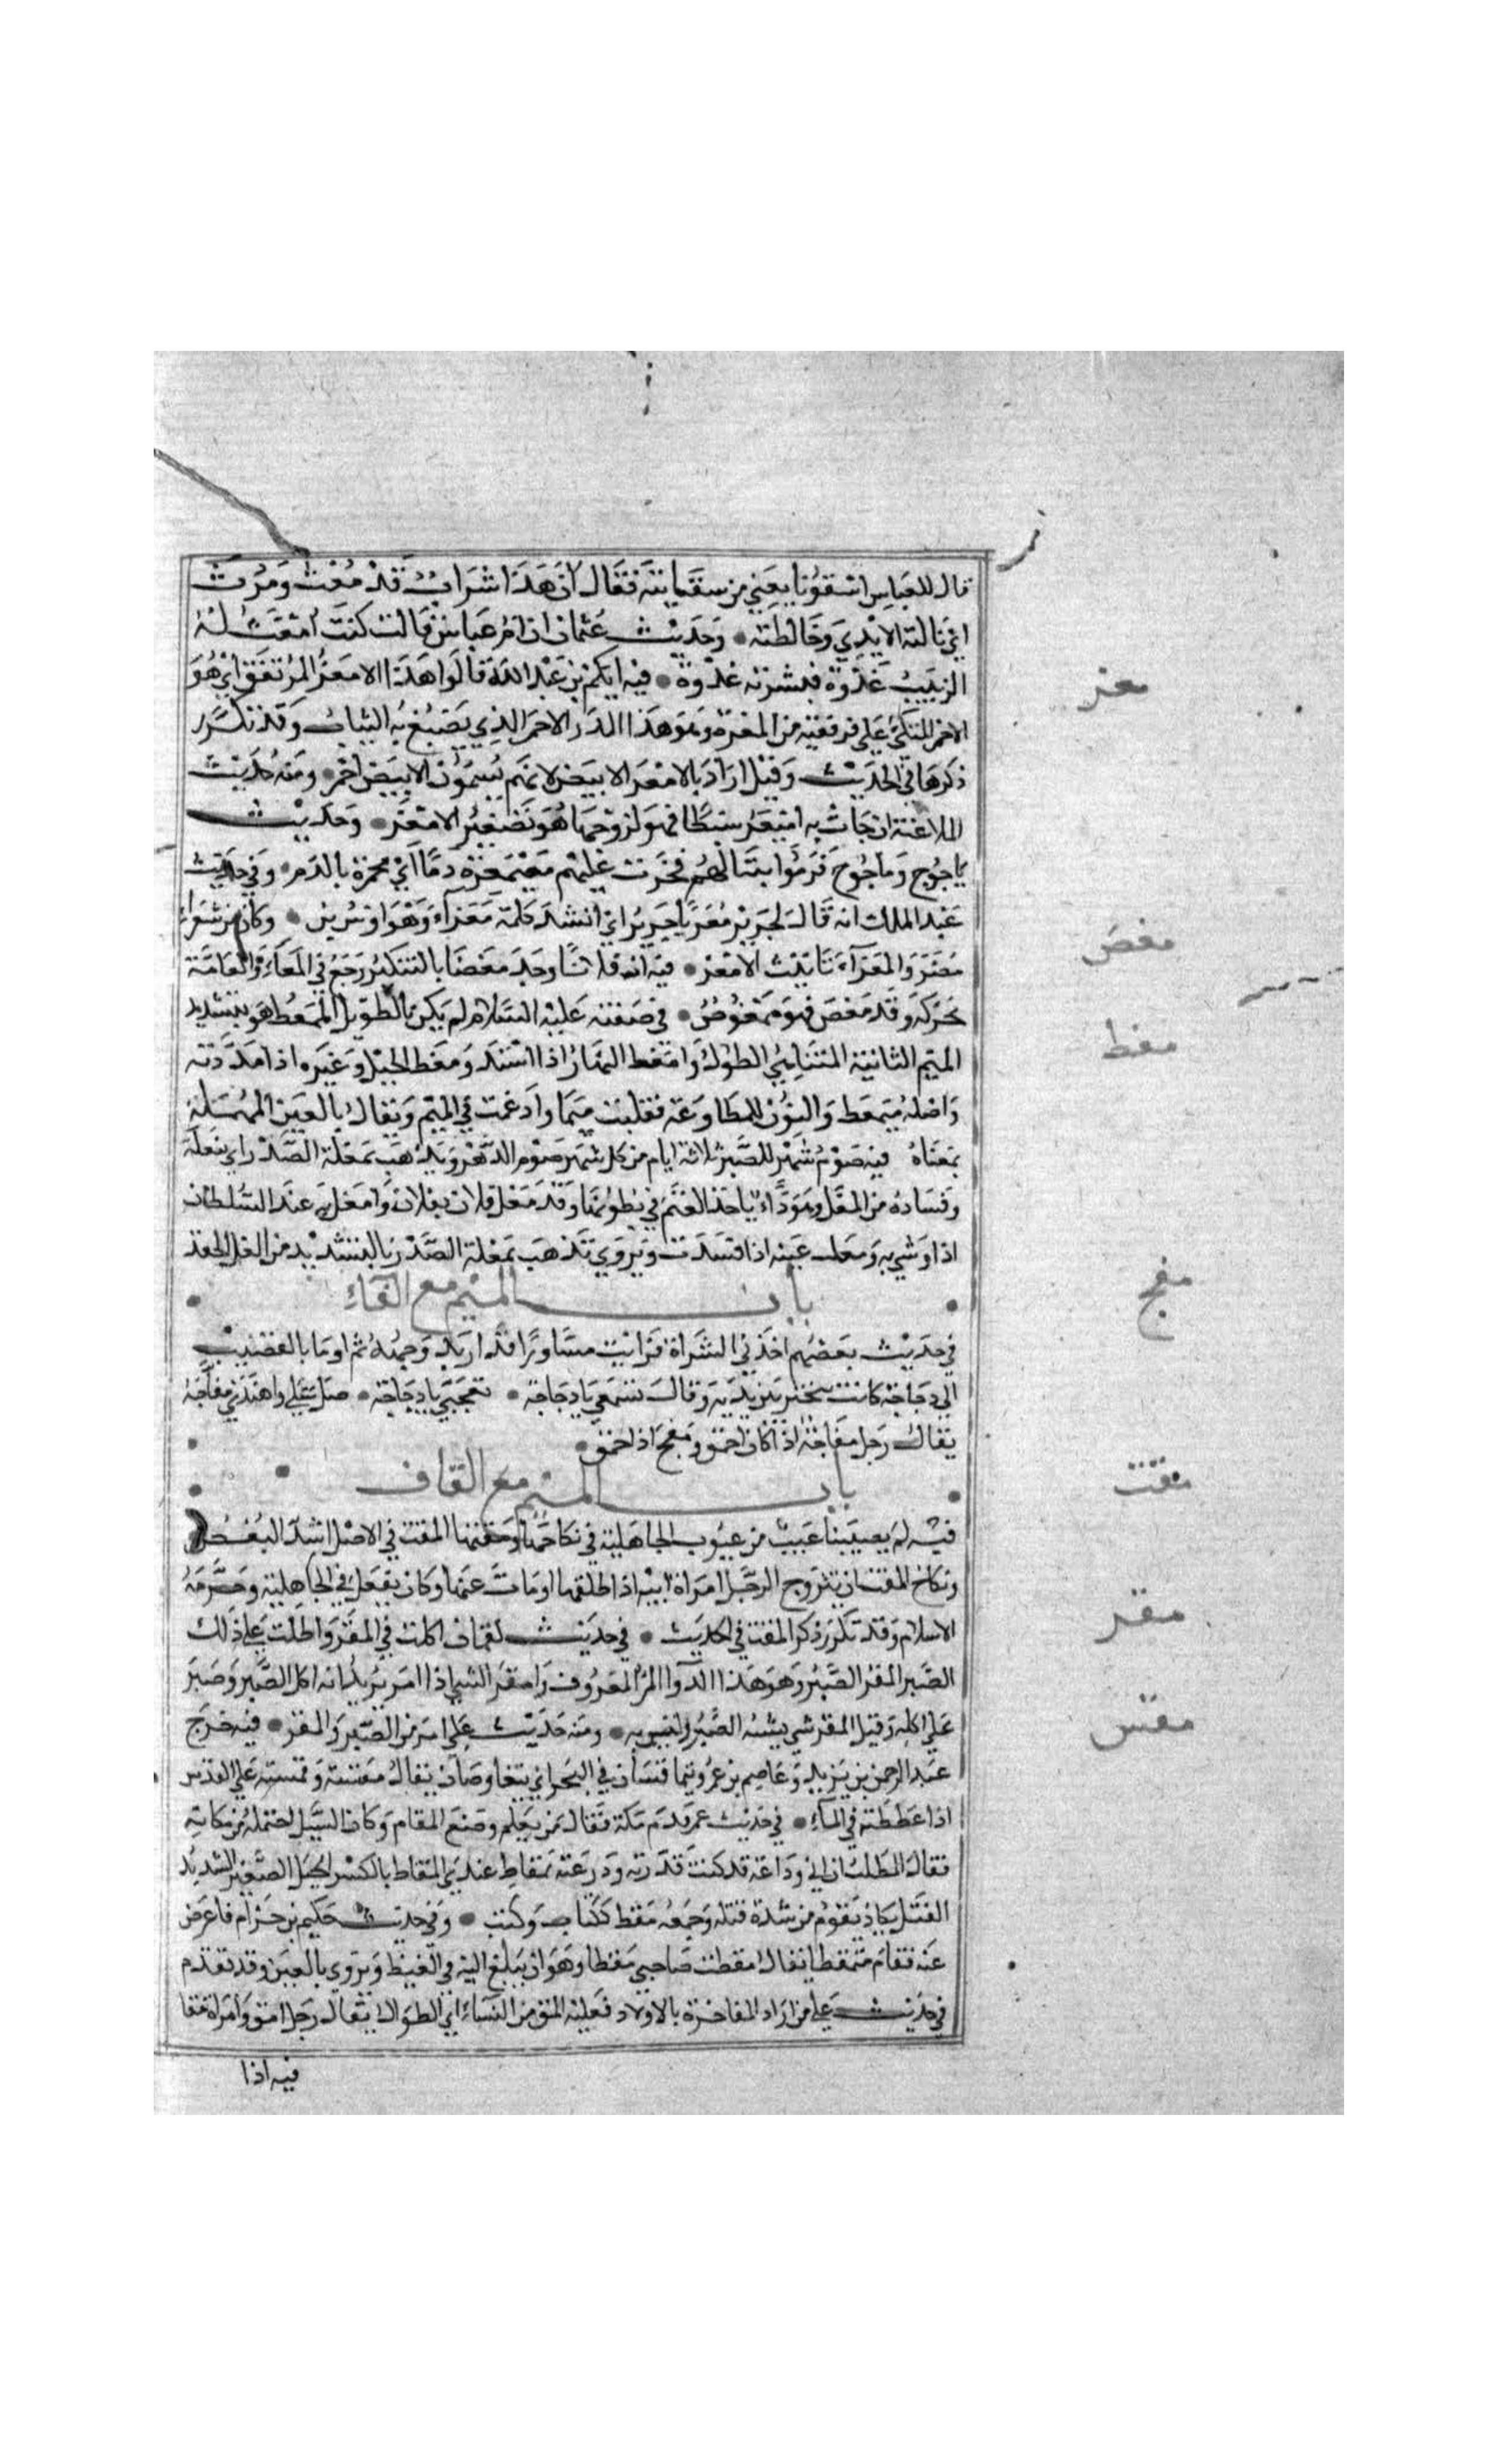 قال للعباس اسقونا يعني من سقايته فقال ان هذا شراب قد مغث ومرث
اي نالته الايدي وخالطته • وحديث عثمان ان ام عياش قالت كنت امغث له
الزبيب غدوة فيشربه • فيه ايكم بن عبد المطلب قالوا هذا الامغر المرتفق اي هو
الاحمر المتكي على مرفقيه من المغرة وهو هذا المدر الاحمر الذي يصبغ به الثياب وقد تكرر
ذكرها في الحديث وقيل اراد بالامغر الابيض لانهم يسمون الابيض احمر • ومنه حديث
الملاعنة ان جات به اميغر سبطا فهو لزوجها هو تصغير الامغر • وحديث
ياجوج وماجوج فرموا بنبالهم فخرت عليهم متمغرة دما اي محمرة بالدم • وفي حديث
عبد الملك انه قال لجرير مغر يا جرير اي انشد كلمة مغراء وهو اوس بن • وكان من شعراء
مضر والمغراء تانيث الامغر • فيه ان فلانا وجد مغصا بالتسكين وجع في المعاء والعامة
تحركه وقد مغص فهو ممغوص • في صفته عليه السلام لم يكن بالطويل الممغط هو بتشديد
الميم الثانية المتناهي الطول وامغط النهار اذا امتد ومغط الحبل وغيره اذا مددته
واصله منمغط والنون للمطاوعة فقلبت ميما وادغمت في الميم ويقال بالعين المهملة
بمعناه فيه صوم شهر الصبر ثلاثة ايام من كل شهر صوم الدهر ويذهب بمغلة الصدر اي بنغله
وفساده من المغل وهو داء ياخذ الغنم في بطونها وقد مغل فلان بفلان وامغل به عند السلطان
اذا وشي به ومغلت عينه اذا فسدت ويروي تذهب بمغلة الصدر بالتشديد من الغل الحقد
باب الميم مع الفاء
في حديث بعضهم اخذني الشراة فرايت مساورا قد اربد وجهه ثم اوما بالقضيب
الى دجاجة كانت تبختر بين يديه وقال تسمعي يا دجاجة • تعجبي يا دجاجة • ضل علي واهتدي مفاجة
يقال رجل مفاجة اذا كان احمق ومفج اذا حمق
باب الميم مع القاف
فيه لم يصيبنا عيب من عيوب الجاهلية في نكاحها ومقتها المقت في الاصل اشد البغض
ونكاح المقت ان يتزوج الرجل امراة ابيه اذا طلقها او مات عنها وكان يفعل في الجاهلية وحرمه
الاسلام وقد تكرر ذكر المقت في الحديث • في حديث لقمان اكلت في المقر واطلت على ذلك
الصبر المقر الصبر وهو هذا الدواء المر المعروف وامقر الشي اذا امر يريد انه اكل الصبر وصبر
على اكله وقيل المقر شي يشبه الصبر وليس به • ومنه حديث علي امر من الصبر والمقر • فيه خرج
عبد الرحمن بن يزيد وعاصم بن عمر يتماقسان في البحر اي يتغاوصان يقال مقسته وقمسته على القلب
اذا غططته في الماء • في حديث عمر قدم مكة فقال من يعلم موضع المقام وكان السيل احتمله من مكانه
فقال المطلب بن ابي وداعة قد كنت قدرته وذرعته بمقاط عندي المقاط بالكسر الحبل الصغير الشديد
الفتل يكاد يقوم من شدة فتله وجمعه مقط ككتاب وكتب • وفي حديث حكيم بن حزام فاعرض
عنه فقام متمقطا يقال مقطت صاحبي مقطا وهو ان يبلغ اليه في الغيظ ويروي بالعين وقد تقدم
في حديث علي من اراد المفاخرة بالاولاد فعليه المق من النساء اي الطوال يقال رجل امق وامراة مقا
فيه اذا
مغر
مغص
مغط
مفج
مقت
مقر
مقس